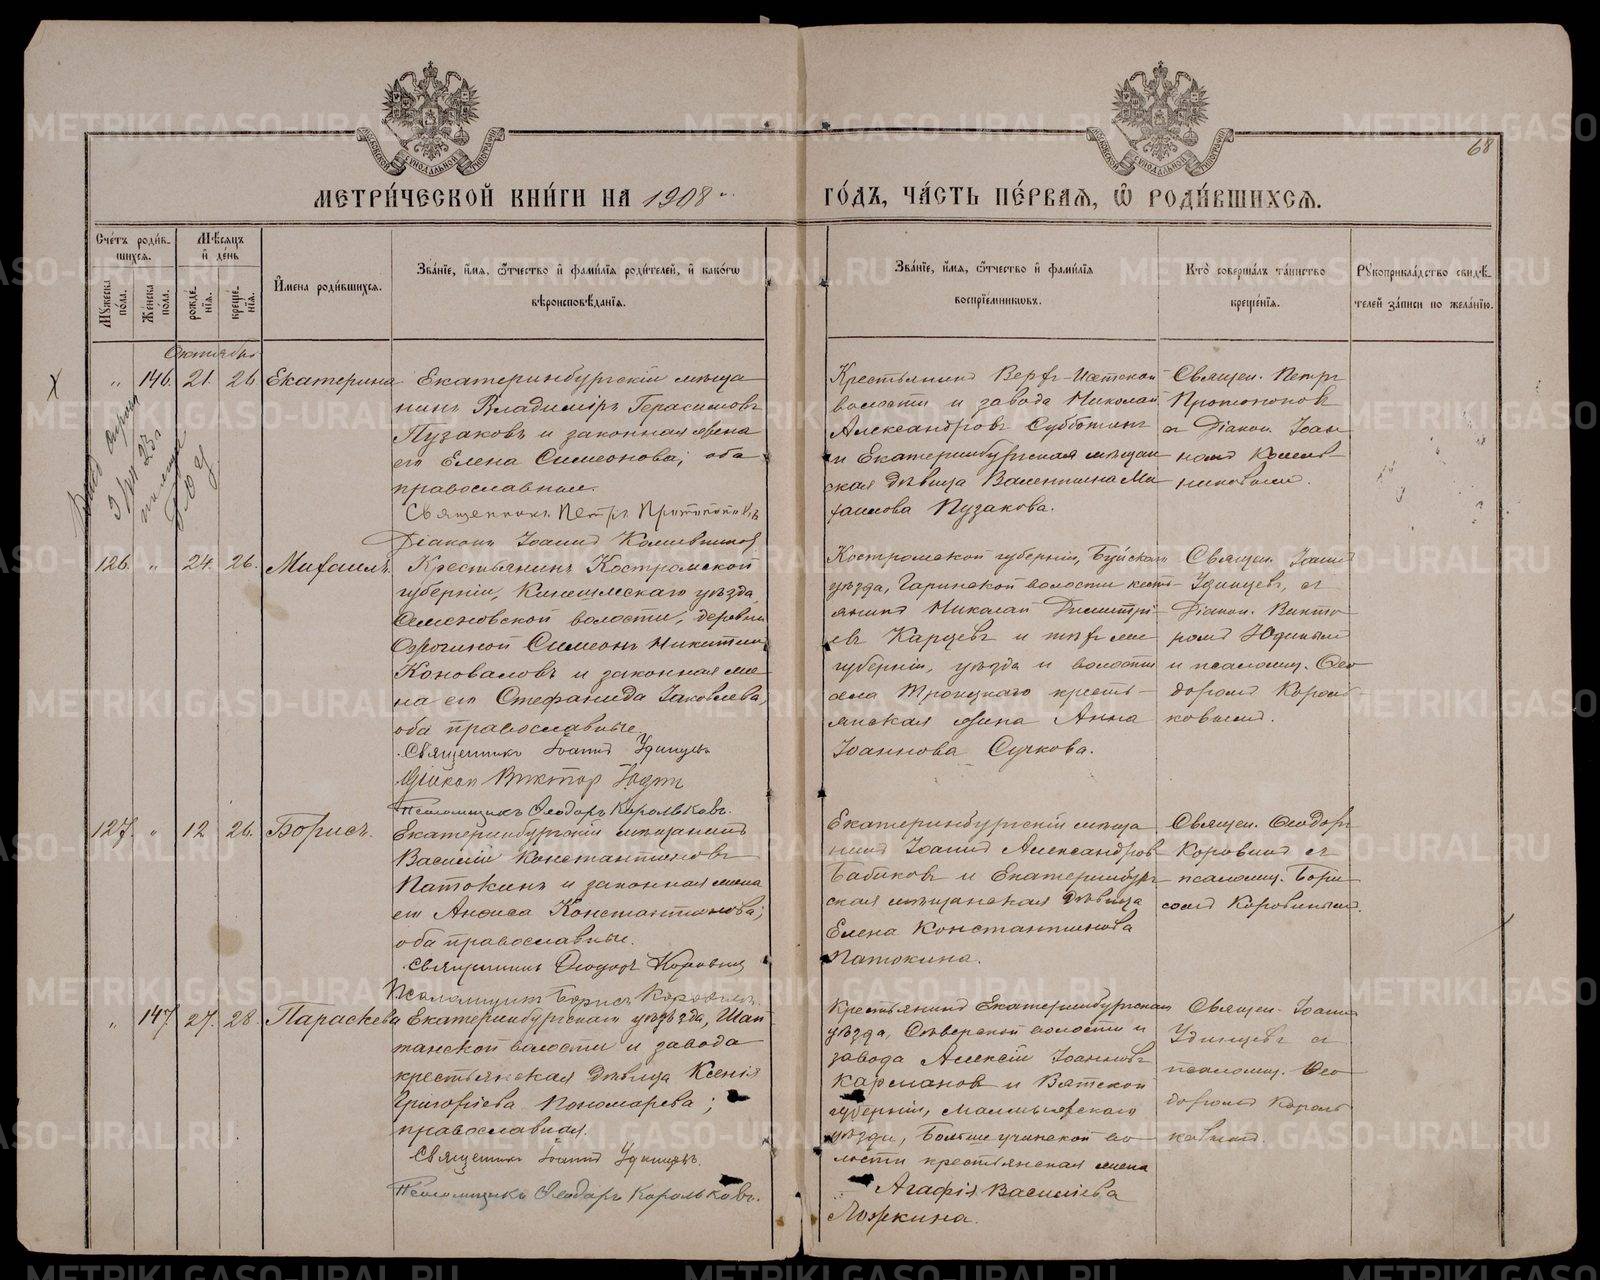 МЕТРИ́ЧЕСКОЙ КНИ́ГИ НА 1908
ГО́ДЪ, ЧА́СТЬ ПЕ́РВАѦ, Ѽ РОДИ́ВШИХСѦ.
68
Сче́тъ роди́в-
шихсѧ.
Мꙋжеска по́ла.
Же́нска по́ла.
Мѣ́сѧцъ и҆ де́нь
рожде́-
нїѧ.
креще́-
нїѧ.
И҆мена роди́вшихсѧ.
Зва́нїе, и҆́мѧ, ѻ҆́тчество и҆ фами́лїѧ роди́телей, и҆ како́гѡ
вѣроисповѣ́данїѧ.
Зва́нїе, и҆́мѧ, ѻ҆́тчество и҆ фами́лїѧ
воспрїе́мникѡвъ.
Кто̀ соверша́лъ та́инство
креще́нїѧ.
Рꙋкоприкла́дство свидѣ́-
телей за́писи по жела́нїю.
Октябрь
" 146. 21. 26 Екатерина
Екатеринбургскій мѣща
нинъ Владиміръ Герасимовъ
Пузаковъ и законная жена
его Елена Симеонова; оба
православные.
Священникъ Петръ Протопоповъ
Діаконъ Іоаннъ
Крестьянинъ Верхъ-Исетской
волости и завода Николай
Александровъ Субботинъ
и Екатеринбургская мѣщан
ская дѣвица Валентина Ми
хаилова Пузакова.
Священ. Петръ
Протопоповъ
съ Діакон. Іоан
номъ
126. " 24. 26. Михаилъ.
Крестьянинъ Костромской
губерніи, Кинешемскаго уѣзда,
Семеновской волости, деревни
Симеонъ Никитинъ
Коноваловъ и законная же
на его Стефанида Іаковлева,
оба православные.
Священникъ Іоаннъ Удинцевъ
Діакон Виктор Юдин
Псаломщикъ Ѳеодоръ Корольковъ.
Костромской губерніи, Буйскаго
уѣзда, Гаринской волости крест-
янинъ Николай Димитрі
евъ Карцевъ и тѣхъ же
губерніи, уѣзда и волости
села Троицкаго кресть-
янская жена Анна
Іоаннова Сучкова.
Священ. Іоаннъ
Удинцевъ, съ
Діакон. Викто
ромъ Юдинымъ
и псаломщ. Ѳео
доромъ Король
ковымъ.
127. " 12 26. Борисъ.
Екатеринбургскій мѣщанинъ
Василій Константиновъ
Патокинъ и законная жена
его Анфиса Константинова;
оба православные.
Священникъ Ѳеодоръ Коровинъ
Псаломщикъ Борисъ Коровинъ.
Екатеринбургскій мѣща
нинъ Іоаннъ Александровъ
Бабиковъ и Екатеринбург
ская мѣщанская дѣвица
Елена Константинова
Патокина.
Священ. Ѳеодоръ
Коровинъ съ
псаломщ. Бори
сомъ Коровинымъ.
" 147 27. 28. Параскева
Екатеринбургскаго уѣзда, Шай
танской волости и завода
крестьянская дѣвица Ксенія
Григоріева Пономарева;
православная.
Священникъ Іоаннъ Удинцевъ.
Псаломщикъ Ѳеодоръ Корольковъ.
Крестьянинъ Екатеринбургскаго
уѣзда, Сѣверской волости и
завода Алексій Іоанновъ
Карманов и Вятской
губерніи, Малмыжскаго
уѣзда, Больше учинской во
лости крестьянская жена
Агафія Василіева
Ложкина.
Священ. Іоаннъ
Удинцевъ съ
псаломщ. Ѳео
доромъ Король
ковымъ.
METRIKI.GASO-URAL.RU